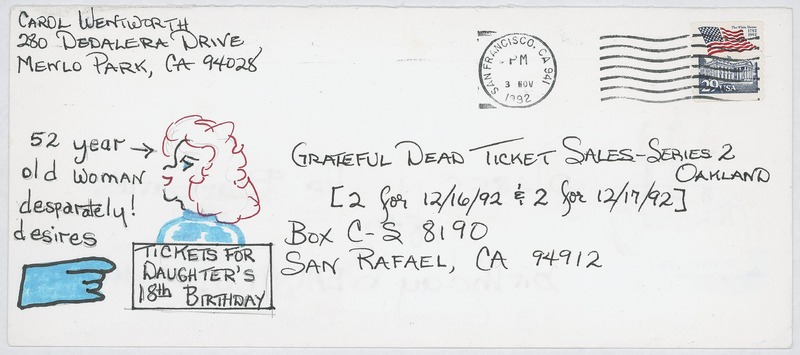 CAROL WENTWORTH
280 DEDALERA DRIVE
MENLO PARK, CA 94028
SAN FRANCISCO, CA 941
PM
3 NOV
1992
The White House
1792 1992
29 USA
52 year
old woman
desparately!
desires
TICKETS FOR
DAUGHTER'S
18th BIRTHDAY
GRATEFUL DEAD TICKET SALES-SERIES 2
OAKLAND
[2 for 12/16/92 & 2 for 12/17/92]
BOX C-S 8190
SAN RAFAEL, CA 94912